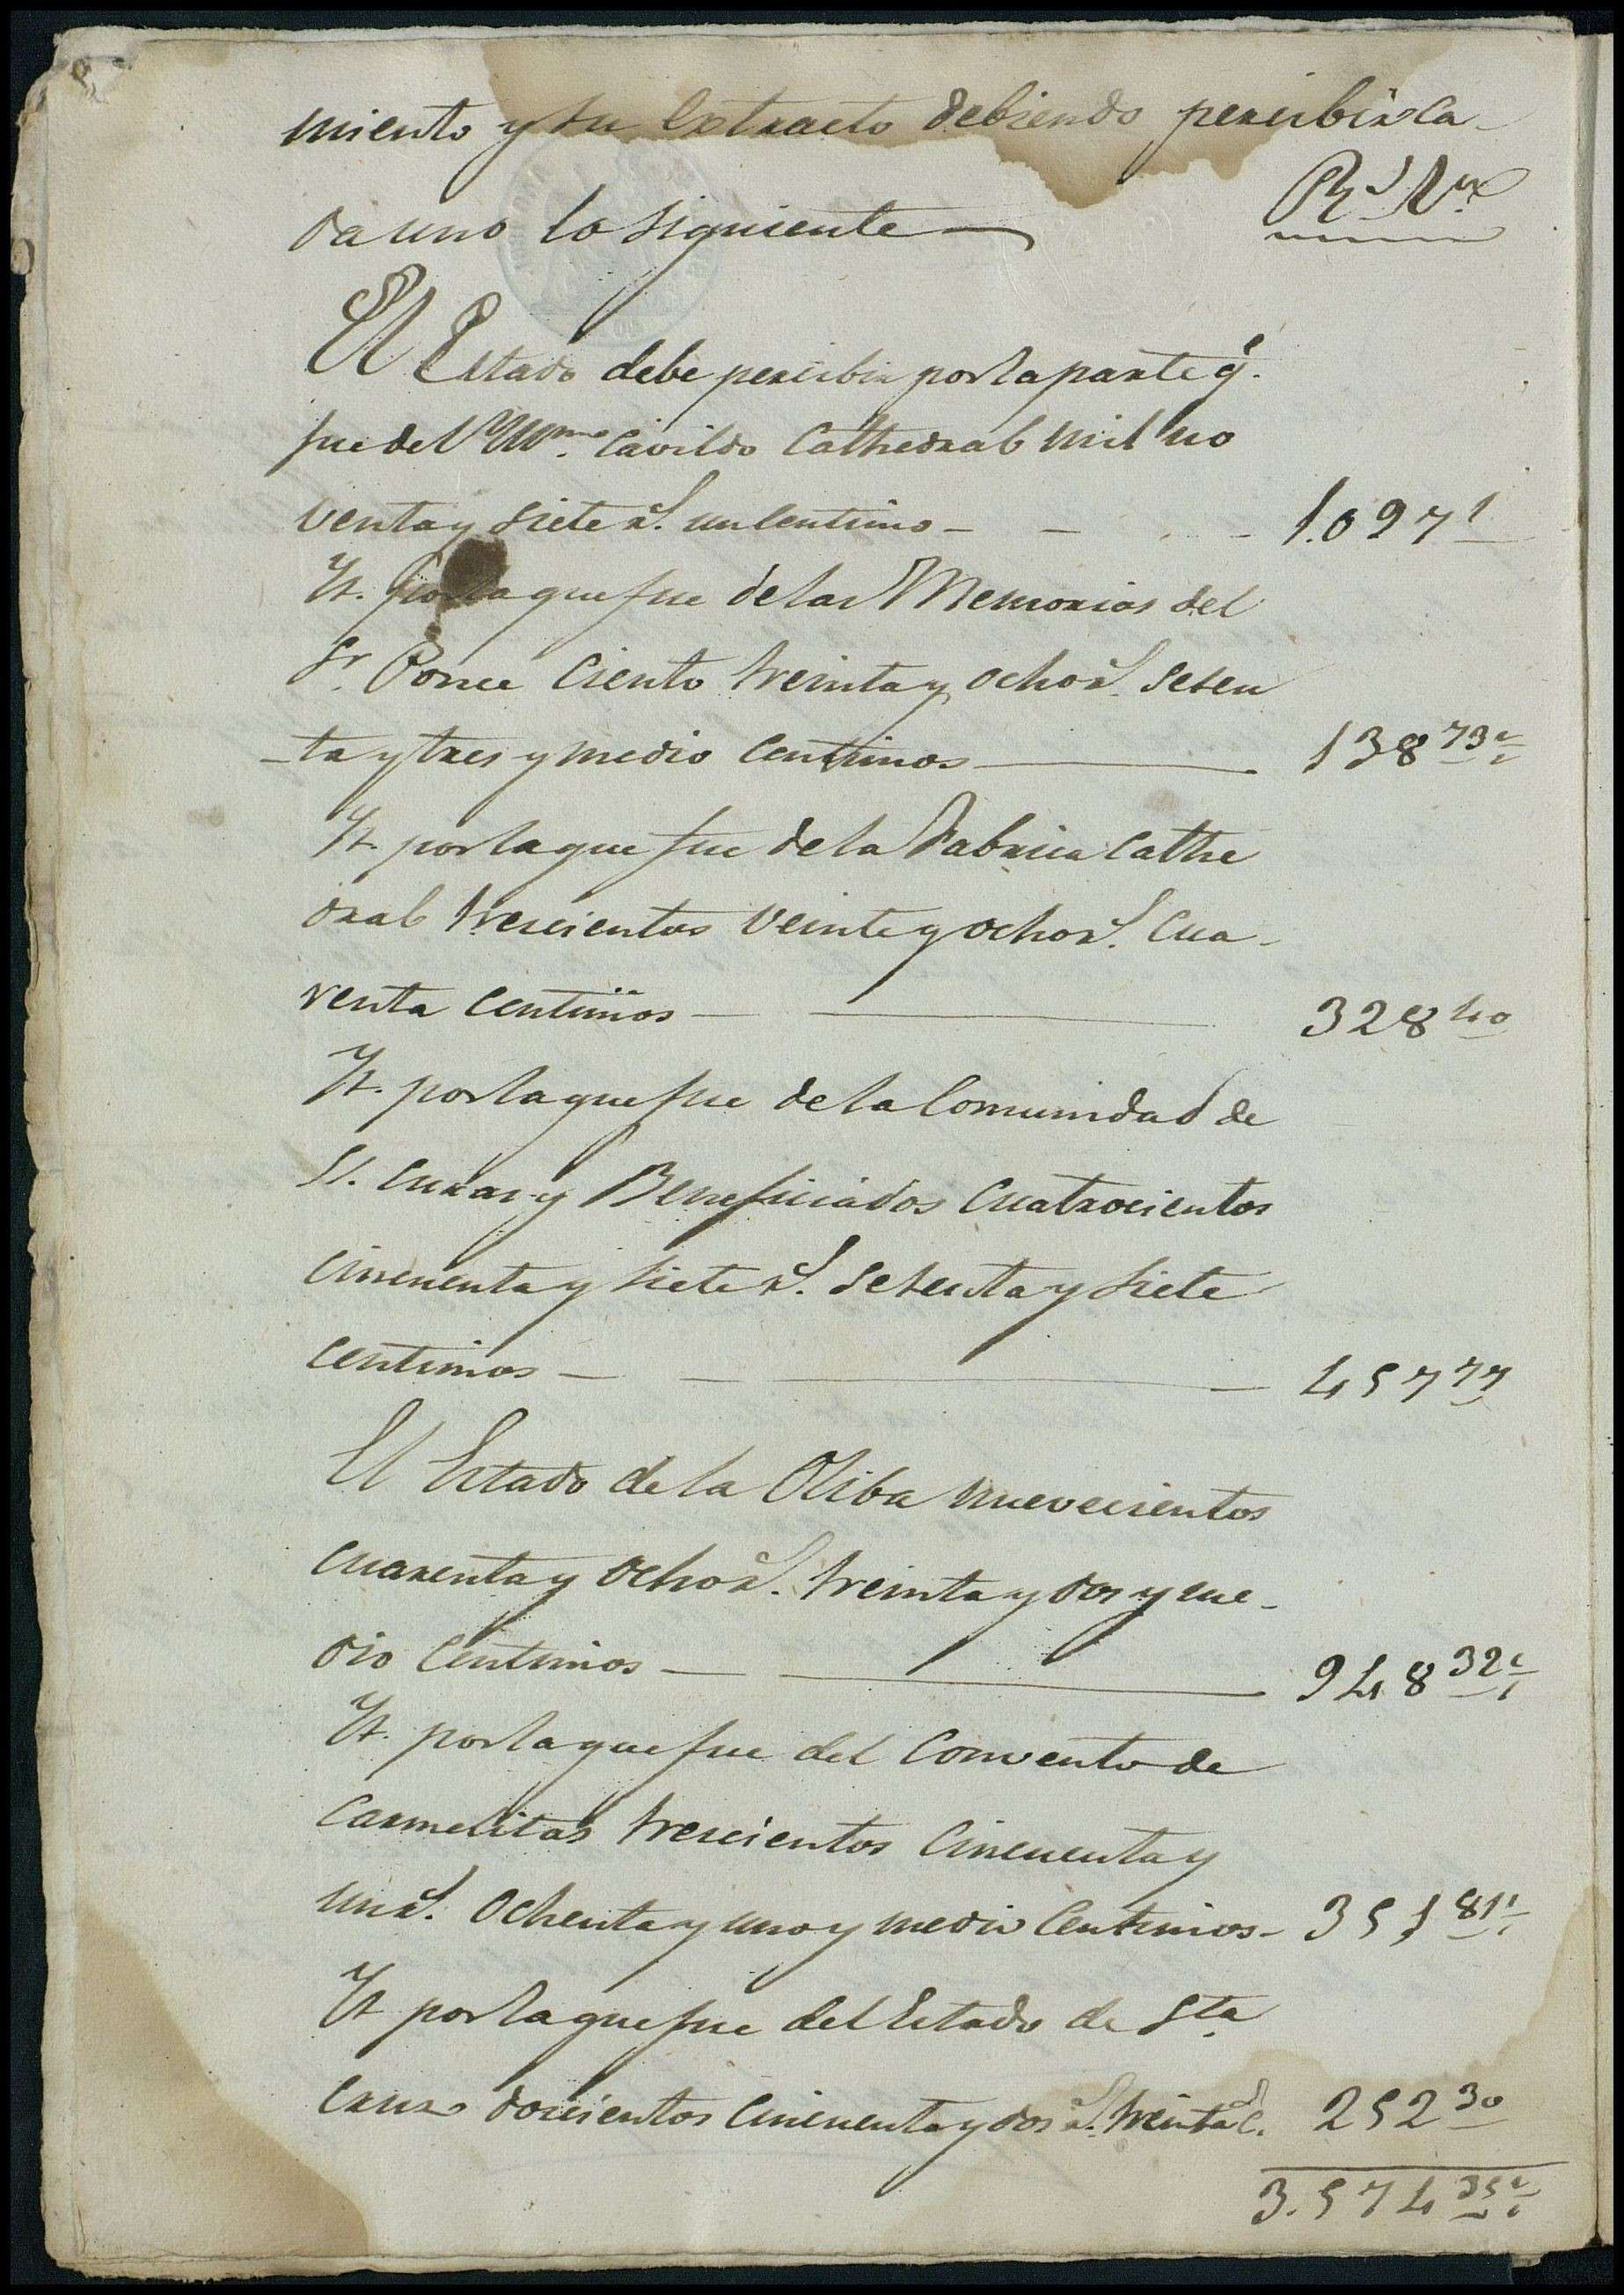 miento y su extracto debiendo percibir ca-
da uno lo siguiente — Rs. Vn.
El Estado debe percibir por la parte q.e
fue del Yllmo. Cavildo Cathedral mil no
venta y siete rs. un centimo - - - 1.097 1
Yt. por la que fue de las Memorias del
Sr. Ponce Ciento treinta y ocho rs. seten
-ta y tres y medio centimos — 138 73 1/2
Yt. por la que fue de la Fabrica Cathe
dral trescientos veinte y ocho rs. cua-
renta centimos — 328 40
Yt. por la que fue de la Comunidad de
SS. Curas y Beneficiados cuatrocientos
cincuenta y siete rs. setenta y siete
centimos — 457 77
El Estado de la Oliba nuevecientos
cuarenta y ocho rs. treinta y dos y me-
dio centimos — 948 32 1/2
Yt. por la que fue del Convento de
Carmelitas trescientos cincuenta y
un rs. ochenta y uno y medio centimos - 351 81 1/2
Yt. por la que fue del Estado de Sta.
Cruz docientos cincuenta y dos rs. treinta c.s 252 30
3.574 35 1/2